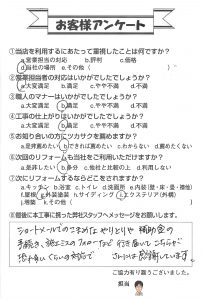 お客様アンケート
①当店を利用するにあたって重視したことは何ですか?
a.営業担当の対応 b.評判 c.価格
d.当社の場所 e.その他( )
②営業担当者の対応はいかがでしたでしょうか?
a.大変満足 b.満足 c.やや不満 d.不満
③職人のマナーはいかがでしたでしょうか?
a.大変満足 b.満足 c.やや不満 d.不満
④工事の仕上がりはいかがでしたでしょうか?
a.大変満足 b.満足 c.やや不満 d.不満
⑤お知り合いの方にツカサックを薦めますか?
a.是非薦めたい b.できれば薦めたい c.わからない d.薦めたくない
⑥次回のリフォームも当社をご利用いただけますか?
a.是非したい b.多分 c.他社と比較の上 d.利用しない
⑦次にリフォームするならどこをされますか?
a.キッチン b.浴室 c.トイレ d.洗面所 e.内装(壁・床・畳・襖他)
f.屋根 g.外装塗装 h.サイディング i.エクステリア(外構)
j.増築 k.その他( )
⑧最後に本工事に携った弊社スタッフへメッセージをお願いします。
ショートメールでのこまめなやりとりや 補助金の
手続き、施工ミスのフォローなど 行き届いて こちらが
恐れ多いくらいの対応で さんには感謝しています
ご協力有り難うございました。
担当